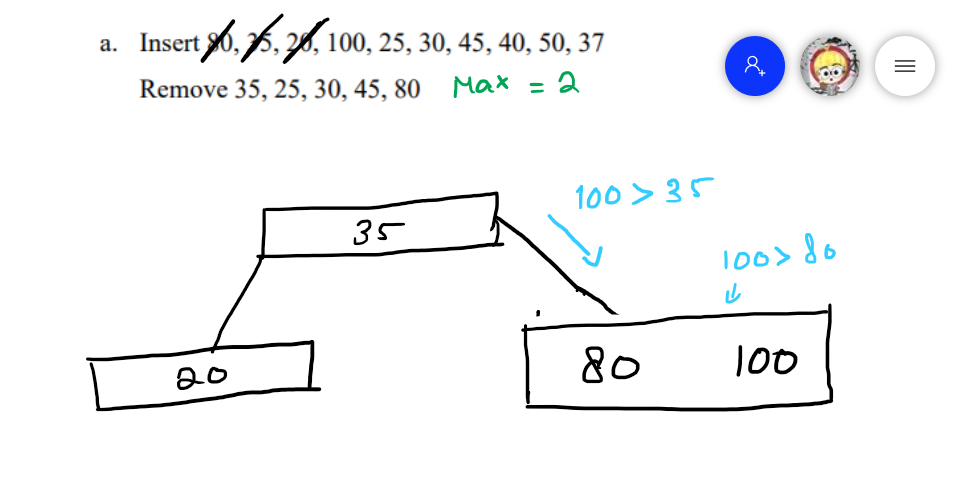 a. Insert 80, 35, 20, 100, 25, 30, 45, 40, 50, 37
Remove 35, 25, 30, 45, 80 Max = 2
100 > 35
35
100 > 80
20
80 100